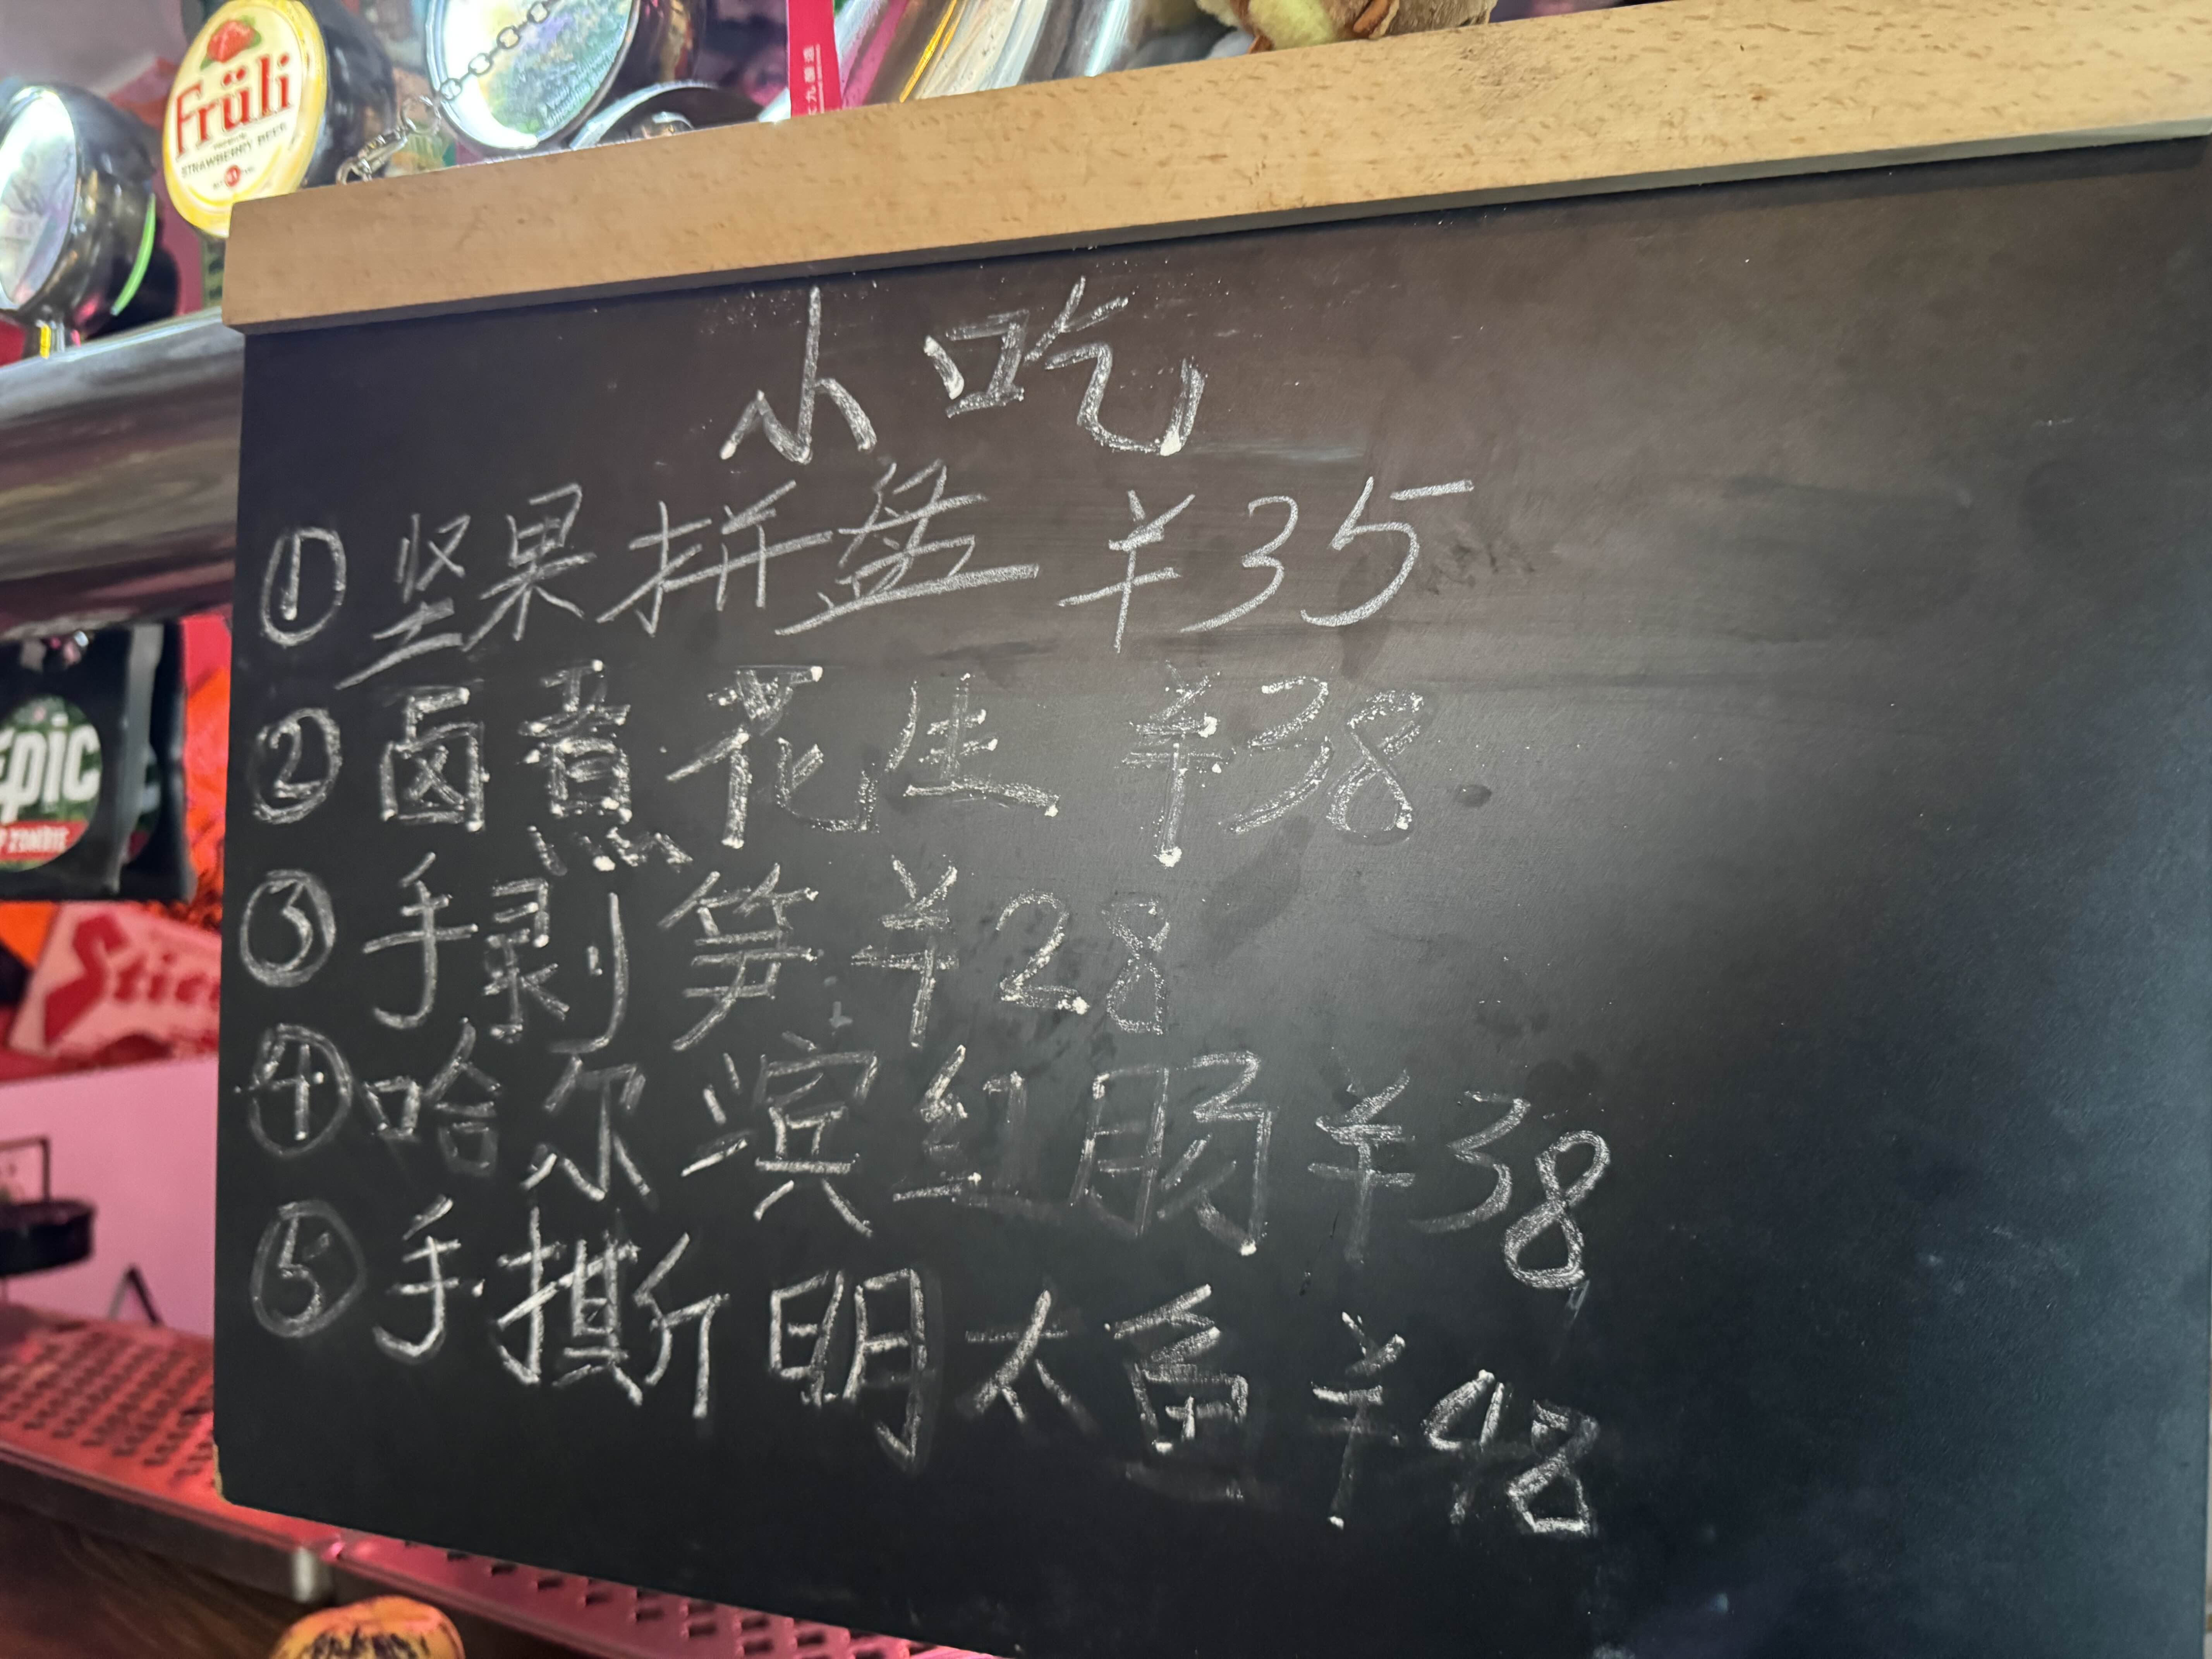 Früli
PREMIUM
STRAWBERRY BEER
小吃
① 坚果拼盘 ¥35
② 卤煮花生 ¥38
③ 手剥笋 ¥28
④ 哈尔滨红肠 ¥38
⑤ 手撕明太鱼 ¥48
EPIC
ZOMBIE
Stie